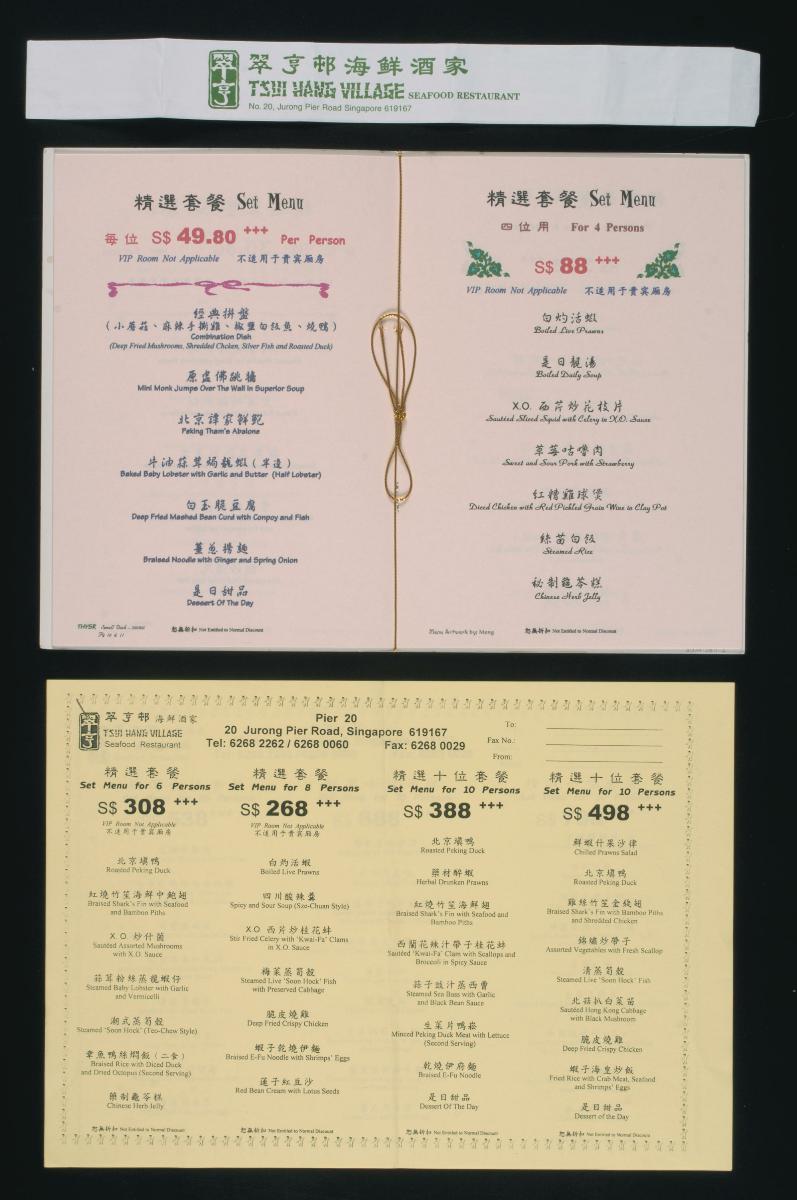 翠亨邨海鮮酒家
翠亨
TSUI HANG VILLAGE SEAFOOD RESTAURANT
No. 20, Jurong Pier Road Singapore 619167
精選套餐 Set Menu
每位 S$ 49.80 +++ Per Person
VIP Room Not Applicable 不适用于貴宾厢房
經典拼盤
(小蘑菇、麻辣手撕雞、椒鹽白飯魚、燒鴨)
Combination Dish
(Deep Fried Mushrooms, Shredded Chicken, Silver Fish and Roasted Duck)
原盅佛跳牆
Mini Monk Jumps Over The Wall in Superior Soup
北京譚家鮮鮑
Peking Tham's Abalone
牛油蒜茸焗龍蝦(半邊)
Baked Baby Lobster with Garlic and Butter (Half Lobster)
白玉脆豆腐
Deep Fried Mashed Bean Curd with Conpoy and Fish
薑葱撈麵
Braised Noodle with Ginger and Spring Onion
是日甜品
Dessert Of The Day
THVSR
恕無折扣 Not Entitled to Normal Discount
精選套餐 Set Menu
四位用 For 4 Persons
S$ 88 +++
VIP Room Not Applicable 不适用于貴宾厢房
白灼活蝦
Boiled Live Prawns
是日靚湯
Boiled Daily Soup
X.O. 西芹炒花枝片
Sautéed Sliced Squid with Celery in X.O. Sauce
草莓咕嚕肉
Sweet and Sour Pork with Strawberry
紅糟雞球煲
Diced Chicken with Red Pickled Grain Wine in Clay Pot
絲苗白飯
Steamed Rice
秘制龜苓糕
Chinese Herb Jelly
Menu Artwork by: Meng
恕無折扣 Not Entitled to Normal Discount
翠亨
翠亨邨 海鮮酒家
TSUI HANG VILLAGE
Seafood Restaurant
Pier 20
20 Jurong Pier Road, Singapore 619167
Tel: 6268 2262 / 6268 0060 Fax: 6268 0029
To:
Fax No.:
From:
精選套餐
Set Menu for 6 Persons
S$ 308 +++
VIP Room Not Applicable
不适用于貴宾厢房
北京填鴨
Roasted Peking Duck
紅燒竹笙海鮮中鮑翅
Braised Shark's Fin with Seafood
and Bamboo Piths
X.O. 炒什菌
Sautéed Assorted Mushrooms
with X.O. Sauce
蒜茸粉絲蒸龍蝦仔
Steamed Baby Lobster with Garlic
and Vermicelli
潮式蒸筍殼
Steamed 'Soon Hock' (Teo-Chew Style)
章魚鴨絲燜飯(二食)
Braised Rice with Diced Duck
and Dried Octopus (Second Serving)
藥制龜苓糕
Chinese Herb Jelly
恕無折扣 Not Entitled to Normal Discount
精選套餐
Set Menu for 8 Persons
S$ 268 +++
VIP Room Not Applicable
不适用于貴宾厢房
白灼活蝦
Boiled Live Prawns
四川酸辣羹
Spicy and Sour Soup (Sze-Chuan Style)
X.O 西片炒桂花蚌
Stir Fried Celery with 'Kwai-Fa' Clams
in X.O. Sauce
梅菜蒸筍殼
Steamed Live 'Soon Hock' Fish
with Preserved Cabbage
脆皮燒雞
Deep Fried Crispy Chicken
蝦子乾燒伊麵
Braised E-Fu Noodle with Shrimps' Eggs
蓮子紅豆沙
Red Bean Cream with Lotus Seeds
恕無折扣 Not Entitled to Normal Discount
精選十位套餐
Set Menu for 10 Persons
S$ 388 +++
北京填鴨
Roasted Peking Duck
藥材醉蝦
Herbal Drunken Prawns
紅燒竹笙海鮮翅
Braised Shark's Fin with Seafood and
Bamboo Piths
西蘭花辣汁帶子桂花蚌
Sautéed 'Kwai-Fa' Clam with Scallops and
Broccoli in Spicy Sauce
蒜子豉汁蒸西曹
Steamed Sea Bass with Garlic
and Black Bean Sauce
生菜片鴨崧
Minced Peking Duck Meat with Lettuce
(Second Serving)
乾燒伊府麵
Braised E-Fu Noodle
是日甜品
Dessert Of The Day
恕無折扣 Not Entitled to Normal Discount
精選十位套餐
Set Menu for 10 Persons
S$ 498 +++
鮮蝦什果沙律
Chilled Prawns Salad
北京填鴨
Roasted Peking Duck
雞絲竹笙金錢翅
Braised Shark's Fin with Bamboo Piths
and Shredded Chicken
錦繡炒帶子
Assorted Vegetables with Fresh Scallop
清蒸筍殼
Steamed Live 'Soon Hock' Fish
北菇扒白菜苗
Sautéed Hong Kong Cabbage
with Black Mushroom
脆皮燒雞
Deep Fried Crispy Chicken
蝦子海皇炒飯
Fried Rice with Crab Meat, Seafood
and Shrimps' Eggs
是日甜品
Dessert of the Day
恕無折扣 Not Entitled to Normal Discount